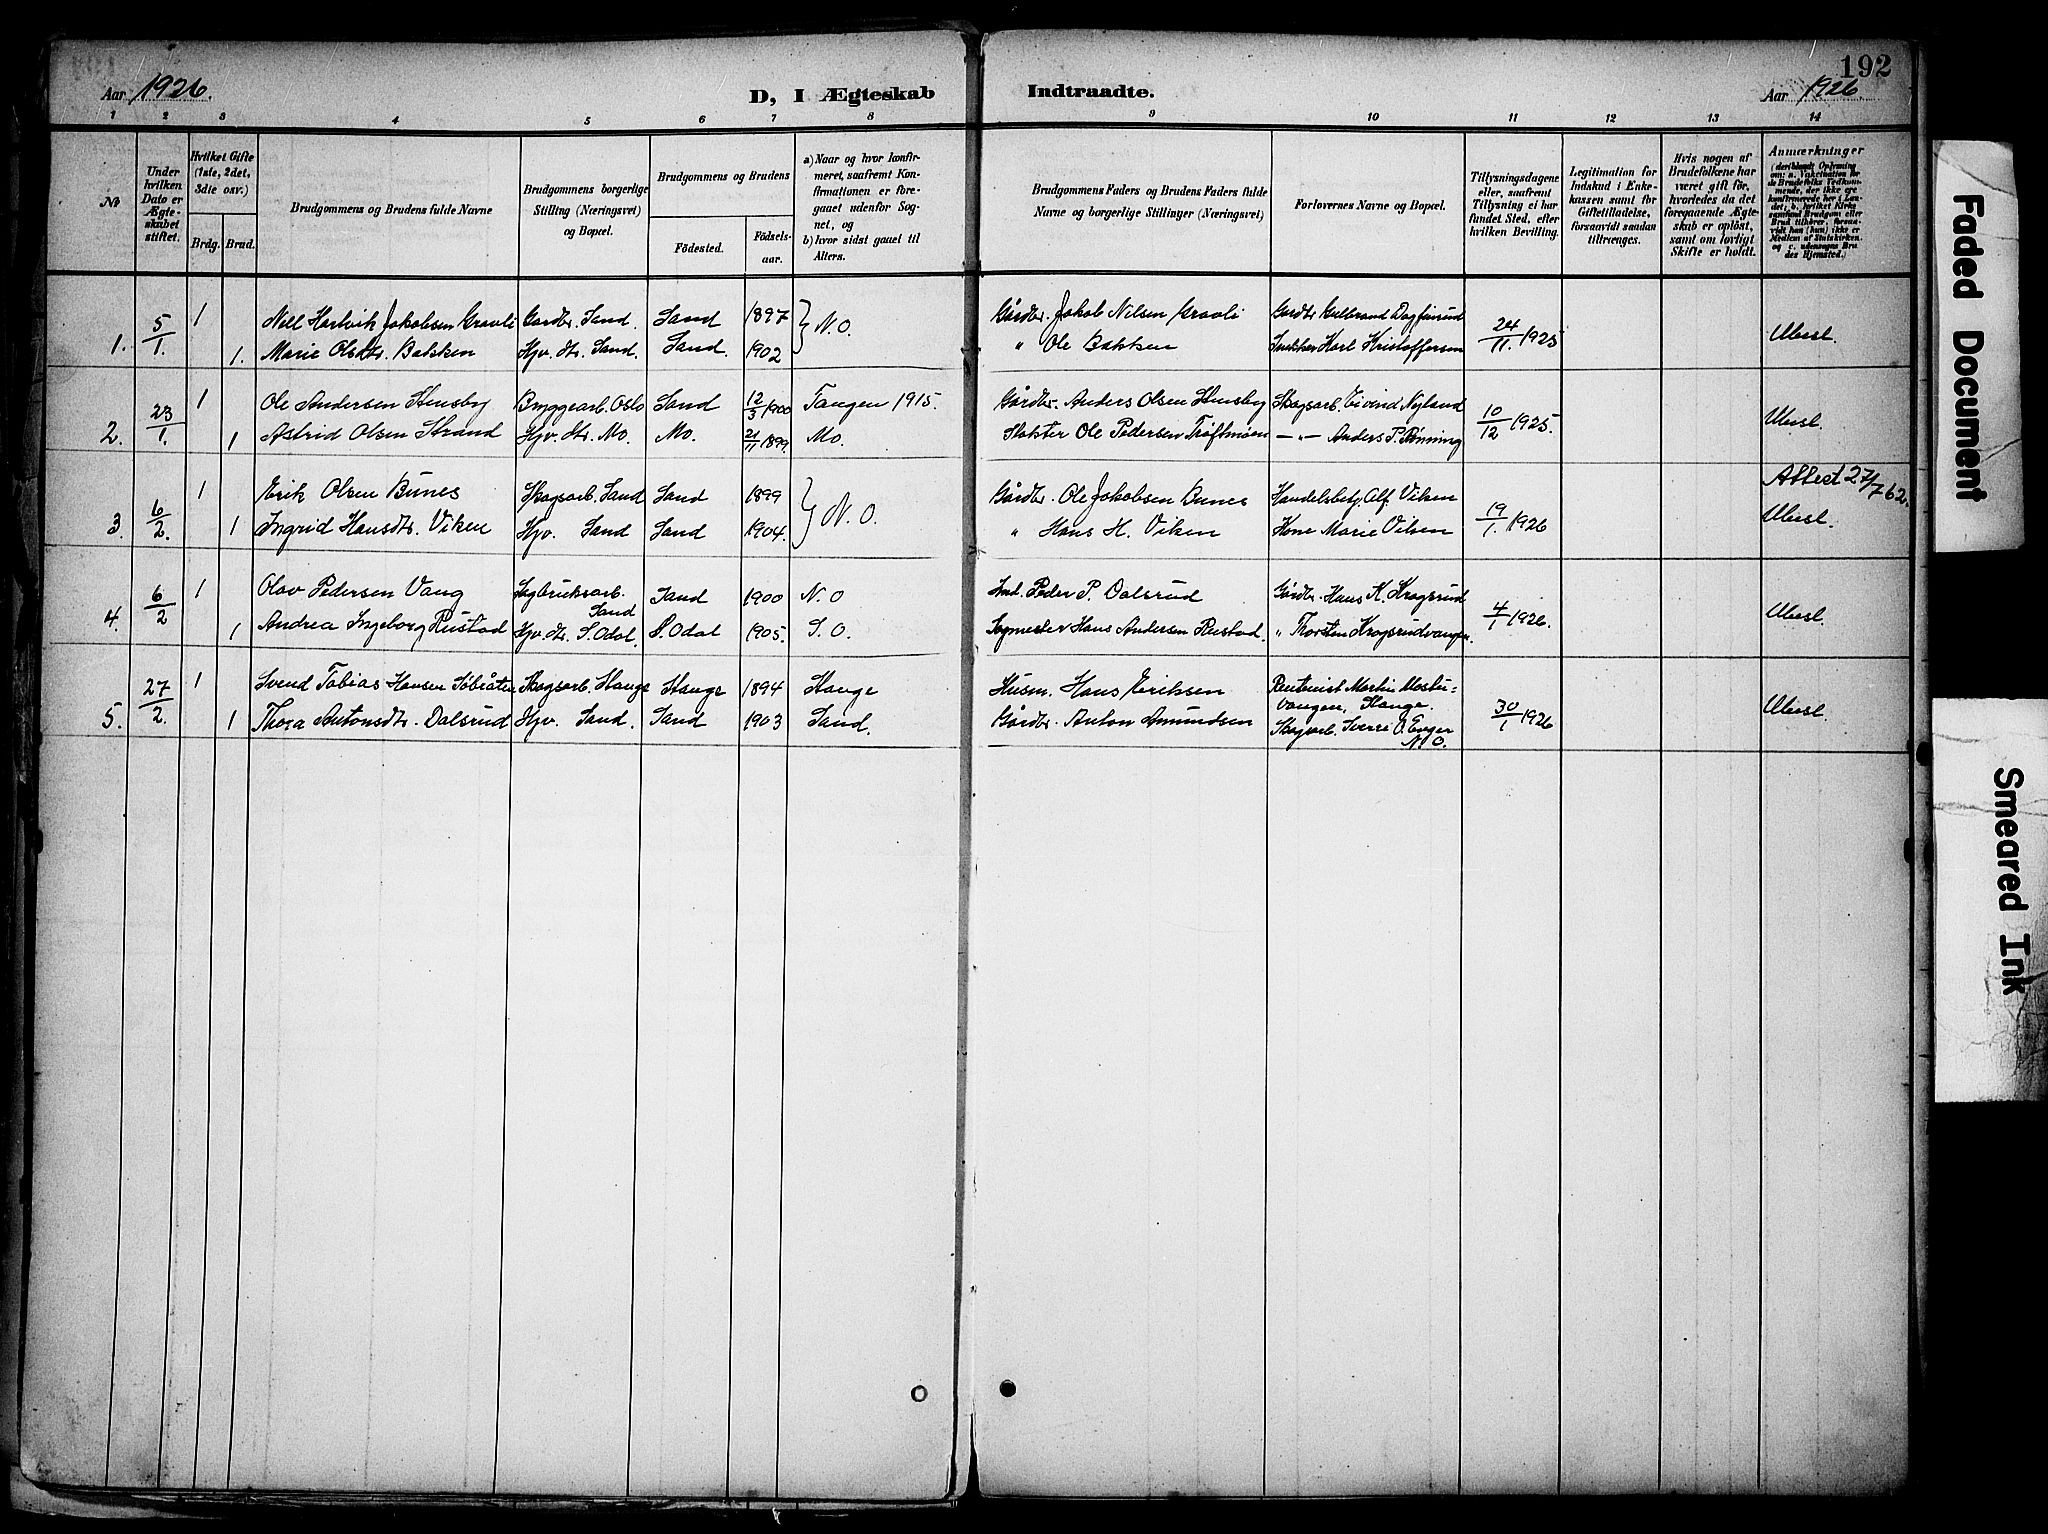 192
Aar 1926.
D, I Ægteskab Indtraadte.
Aar 1926.
1 2 3 4 5 6 7 8 9 10 11 12 13 14
No
Under hvilken Dato er Ægteskabet stiftet.
Hvilket Gifte (1ste, 2det, 3die osv.)
Brdg. Brud.
Brudgommens og Brudens fulde Navne
Brudgommens borgerlige Stilling (Næringsvei) og Bopæl.
Brudgommens og Brudens
Fødested. Fødselsaar.
a) Naar og hvor konfirmeret, saafremt Konfirmationen er foregaaet udenfor Sognet, og
b) hvor sidst gaaet til Alters.
Brudgommens Faders og Brudens Faders fulde Navne og borgerlige Stillinger (Næringsvei)
Forlovernes Navne og Bopæl.
Tillysningsdagene eller, saafremt Tillysning ei har fundet Sted, efter hvilken Bevilling.
Legitimation for Indskud i Enkekassen samt for Giftetilladelse, forsaavidt saadan tiltrænges.
Hvis nogen af Brudefolkene har været gift før, hvorledes da det foregaaende Ægteskab er opløst, samt om lovligt Skifte er holdt.
Anmærkninger
(deriblandt Oplysning om: a. Vakcination for de Brudefolks Vedkommende, der ikke ere konfirmerede her i Landet; b. hvilket Kirkesamfund Brudgom eller Brud tilhører, forsaavidt han (hun) ikke er Medlem af Statskirken, og c. udensogns Brudes Hjemsted.)
1. 5/1. 1 Nill Hartvik Jakobsen Gravli Gardbr. Sand. Sand 1897 } N.O. Gårdbr. Jakob Nilsen Gravli Gardbr Gulbrand Dagfinrud 24/11. 1925 Ubesl.
1. Marie Olsdtr. Bakken Hjv. dtr. Sand. Sand. 1902 " Ole Bakken Snekker Karl Kristoffersen
2. 23/1. 1 Ole Andersen Stensby Bryggearb. Oslo Sand 12/3 1900 Tangen 1915. Gårdbr. Anders Olsen Stensby Skogsarb. Eivind Nyland 10/12 1925. Ubesl.
1 Astrid Olsen Strand Hjv. dtr. Mo. Mo. 21/11 1899. Mo. Ole Pedersen Trøftmoen —"— Anders P. Rønning
3. 6/2. 1 Erik Olsen Bunes Skogsarb. Sand Sand 1899 } N.O. Gårdbr. Ole Jakobsen Bunes Handelsbetj. Alf. Viken 19/1. 1926 Attest 27/7 62.
1 Ingrid Hansdtr. Viken Hjv. Sand Sand 1904. " Hans H. Viken Kone Marie Vilsen Ubesl.
4. 6/2 1 Olav Pedersen Vang Sagbruksarb. Sand Sand 1900 N.O Ind. Peder P. Dalsrud Gårdbr. Hans K. Krogsrud 4/1 1926. Ubesl.
1 Andrea Ingeborg Rustad Hjv. dtr. S. Odal. S. Odal 1905. S.O. Sagmester Hans Andersen Rustad. " Thorsten Krogsrudvangen.
5. 27/2. 1 Svend Tobias Hansen Søbråten Skogsarb. Stange Stange 1894 Stange Husm. Hans Eriksen Rentenist Martin Mostuevangen, Stange. 30/1 1926 Ubesl.
1 Thora Antonsdtr. Dalsrud Hjv. Sand. Sand 1903 Sand. Gårdbr. Anton Amundsen Skogsarb. Sverre O. Enger N.O.
Faded Document
Smeared Ink